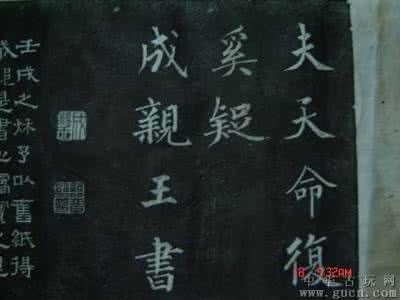 夫天命復
奚疑
成親王書
壬戌之秌予以舊紙得
成親王書
9:32AM
中华古玩网
www.gucn.com